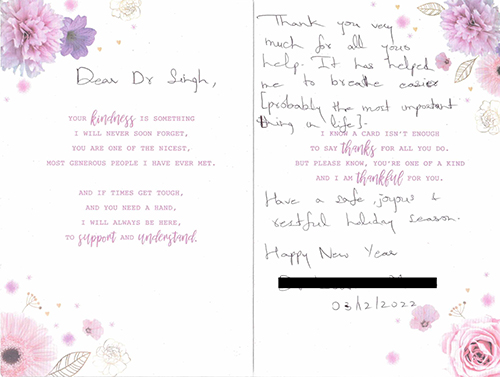 Dear Dr Singh,
YOUR kindness IS SOMETHING
I WILL NEVER SOON FORGET,
YOU ARE ONE OF THE NICEST,
MOST GENEROUS PEOPLE I HAVE EVER MET.
AND IF TIMES GET TOUGH,
AND YOU NEED A HAND,
I WILL ALWAYS BE HERE,
TO support AND understand.
Thank you very
much for all your
help. It has helped
me to breathe easier
[probably the most important
thing in life].
I KNOW A CARD ISN'T ENOUGH
TO SAY thanks FOR ALL YOU DO.
BUT PLEASE KNOW, YOU'RE ONE OF A KIND
AND I AM thankful FOR YOU.
Have a safe, joyous &
restful holiday season.
Happy New Year
03/12/2022